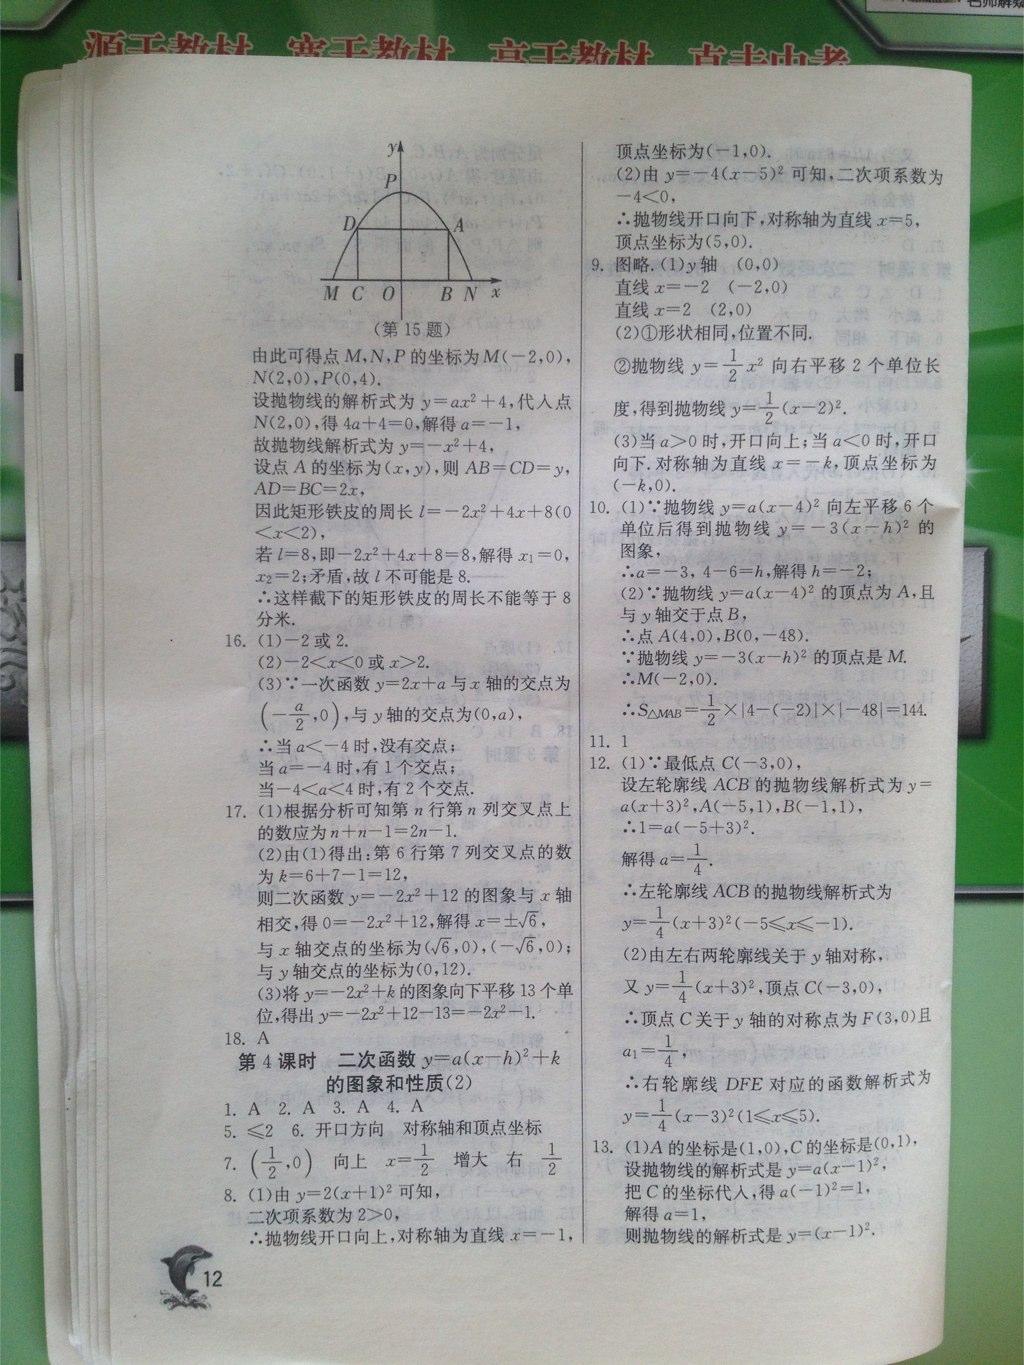 源于教材 宽于教材 高于教材 直击中考
名师解疑
y
P
D A
M C O B N x
(第15题)
由此可得点M,N,P的坐标为M(-2,0),
N(2,0),P(0,4).
设抛物线的解析式为y=ax²+4,代入点
N(2,0),得4a+4=0,解得a=-1,
故抛物线解析式为y=-x²+4,
设点A的坐标为(x,y),则AB=CD=y,
AD=BC=2x,
因此矩形铁皮的周长l=-2x²+4x+8(0
<x<2),
若l=8,即-2x²+4x+8=8,解得x₁=0,
x₂=2;矛盾,故l不可能是8.
∴这样截下的矩形铁皮的周长不能等于8
分米.
16. (1)-2或2.
(2)-2<x<0或x>2.
(3)∵一次函数y=2x+a与x轴的交点为
(-a/2,0),与y轴的交点为(0,a),
∴当a<-4时,没有交点;
当a=-4时,有1个交点;
当-4<a<4时,有2个交点.
17. (1)根据分析可知第n行第n列交叉点上
的数应为n+n-1=2n-1.
(2)由(1)得出:第6行第7列交叉点的数
为k=6+7-1=12,
则二次函数y=-2x²+12的图象与x轴
相交,得0=-2x²+12,解得x=±√6,
与x轴交点的坐标为(√6,0),(-√6,0);
与y轴交点的坐标为(0,12).
(3)将y=-2x²+k的图象向下平移13个单
位,得出y=-2x²+12-13=-2x²-1.
18. A
第4课时 二次函数y=a(x-h)²+k
的图象和性质(2)
1. A 2. A 3. A 4. A
5. ≤2 6. 开口方向 对称轴和顶点坐标
7. (1/2,0) 向上 x=1/2 增大 右 1/2
8. (1)由y=2(x+1)²可知,
二次项系数为2>0,
∴抛物线开口向上,对称轴为直线x=-1,
12
顶点坐标为(-1,0).
(2)由y=-4(x-5)²可知,二次项系数为
-4<0,
∴抛物线开口向下,对称轴为直线x=5,
顶点坐标为(5,0).
9. 图略.(1)y轴 (0,0)
直线x=-2 (-2,0)
直线x=2 (2,0)
(2)①形状相同,位置不同.
②抛物线y=1/2x²向右平移2个单位长
度,得到抛物线y=1/2(x-2)².
(3)当a>0时,开口向上;当a<0时,开口
向下.对称轴为直线x=-k,顶点坐标为
(-k,0).
10. (1)∵抛物线y=a(x-4)²向左平移6个
单位后得到抛物线y=-3(x-h)²的
图象,
∴a=-3, 4-6=h,解得h=-2;
(2)∵抛物线y=a(x-4)²的顶点为A,且
与y轴交于点B,
∴点A(4,0),B(0,-48).
∵抛物线y=-3(x-h)²的顶点是M.
∴M(-2,0).
∴S△MAB=1/2×|4-(-2)|×|-48|=144.
11. 1
12. (1)∵最低点C(-3,0),
设左轮廓线ACB的抛物线解析式为y=
a(x+3)²,A(-5,1),B(-1,1),
∴1=a(-5+3)².
解得a=1/4.
∴左轮廓线ACB的抛物线解析式为
y=1/4(x+3)²(-5≤x≤-1).
(2)由左右两轮廓线关于y轴对称,
又y=1/4(x+3)²,顶点C(-3,0),
∴顶点C关于y轴的对称点为F(3,0)且
a₁=1/4,
∴右轮廓线DFE对应的函数解析式为
y=1/4(x-3)²(1≤x≤5).
13. (1)A的坐标是(1,0),C的坐标是(0,1),
设抛物线的解析式是y=a(x-1)²,
把C的坐标代入,得a(-1)²=1,
解得a=1,
则抛物线的解析式是y=(x-1)².